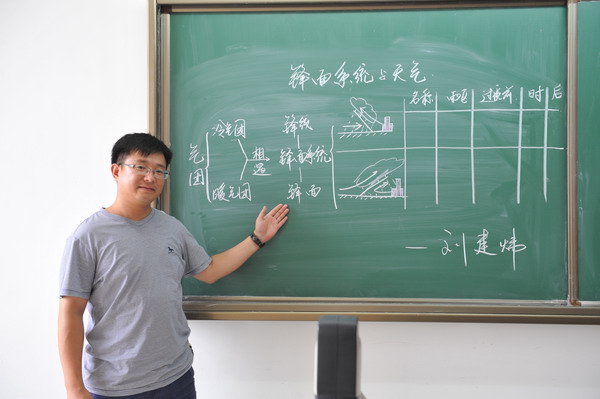 锋面系统与天气
气团
冷气团
暖气团
相遇
锋线
锋面系统
锋面
名称 雨区 过境前 时 后
—刘建炜